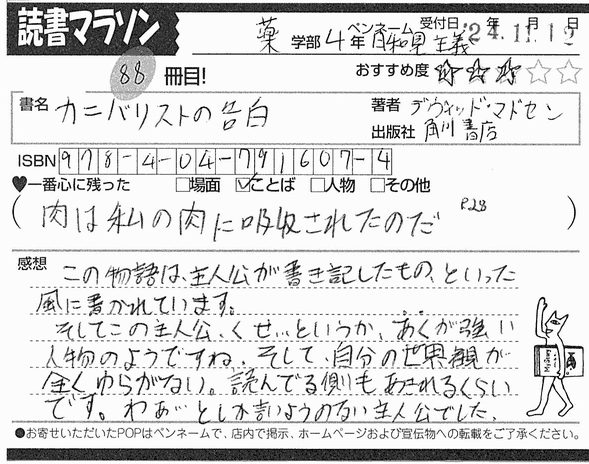 読書マラソン
薬 学部 4 年 ペンネーム 日和見主義 受付日: '24.11.12 年 月 日
88 冊目! おすすめ度 ★★★☆☆
書名 カニバリストの告白 著者 デヴィッド・マドセン
出版社 角川書店
ISBN 978-4-04-791607-4
♥一番心に残った □場面 ☑ことば □人物 □その他
(肉は私の肉に吸収されたのだ P.28)
感想 この物語は、主人公が書き記したもの、といった
風に書かれています。
そしてこの主人公、くせ…というか、あくが強い
人物のようですね、そして、自分の世界観が
全くゆらがない。読んでる側もあきれるくらい
です。わぁ…としか言いようのない主人公でした。
●お寄せいただいたPOPはペンネームで、店内で掲示、ホームページおよび宣伝物への転載をご了承ください。